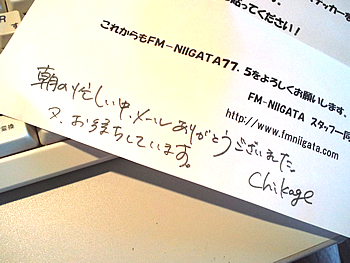 テッカーを
貼ってください！
これからもFM-NIIGATA77.5をよろしくお願いします。
FM-NIIGATA スタッフ一同
http://www.fmniigata.com
朝の忙しい中、メールありがとうございました。
又、お待ちしています。
Chikage
変換